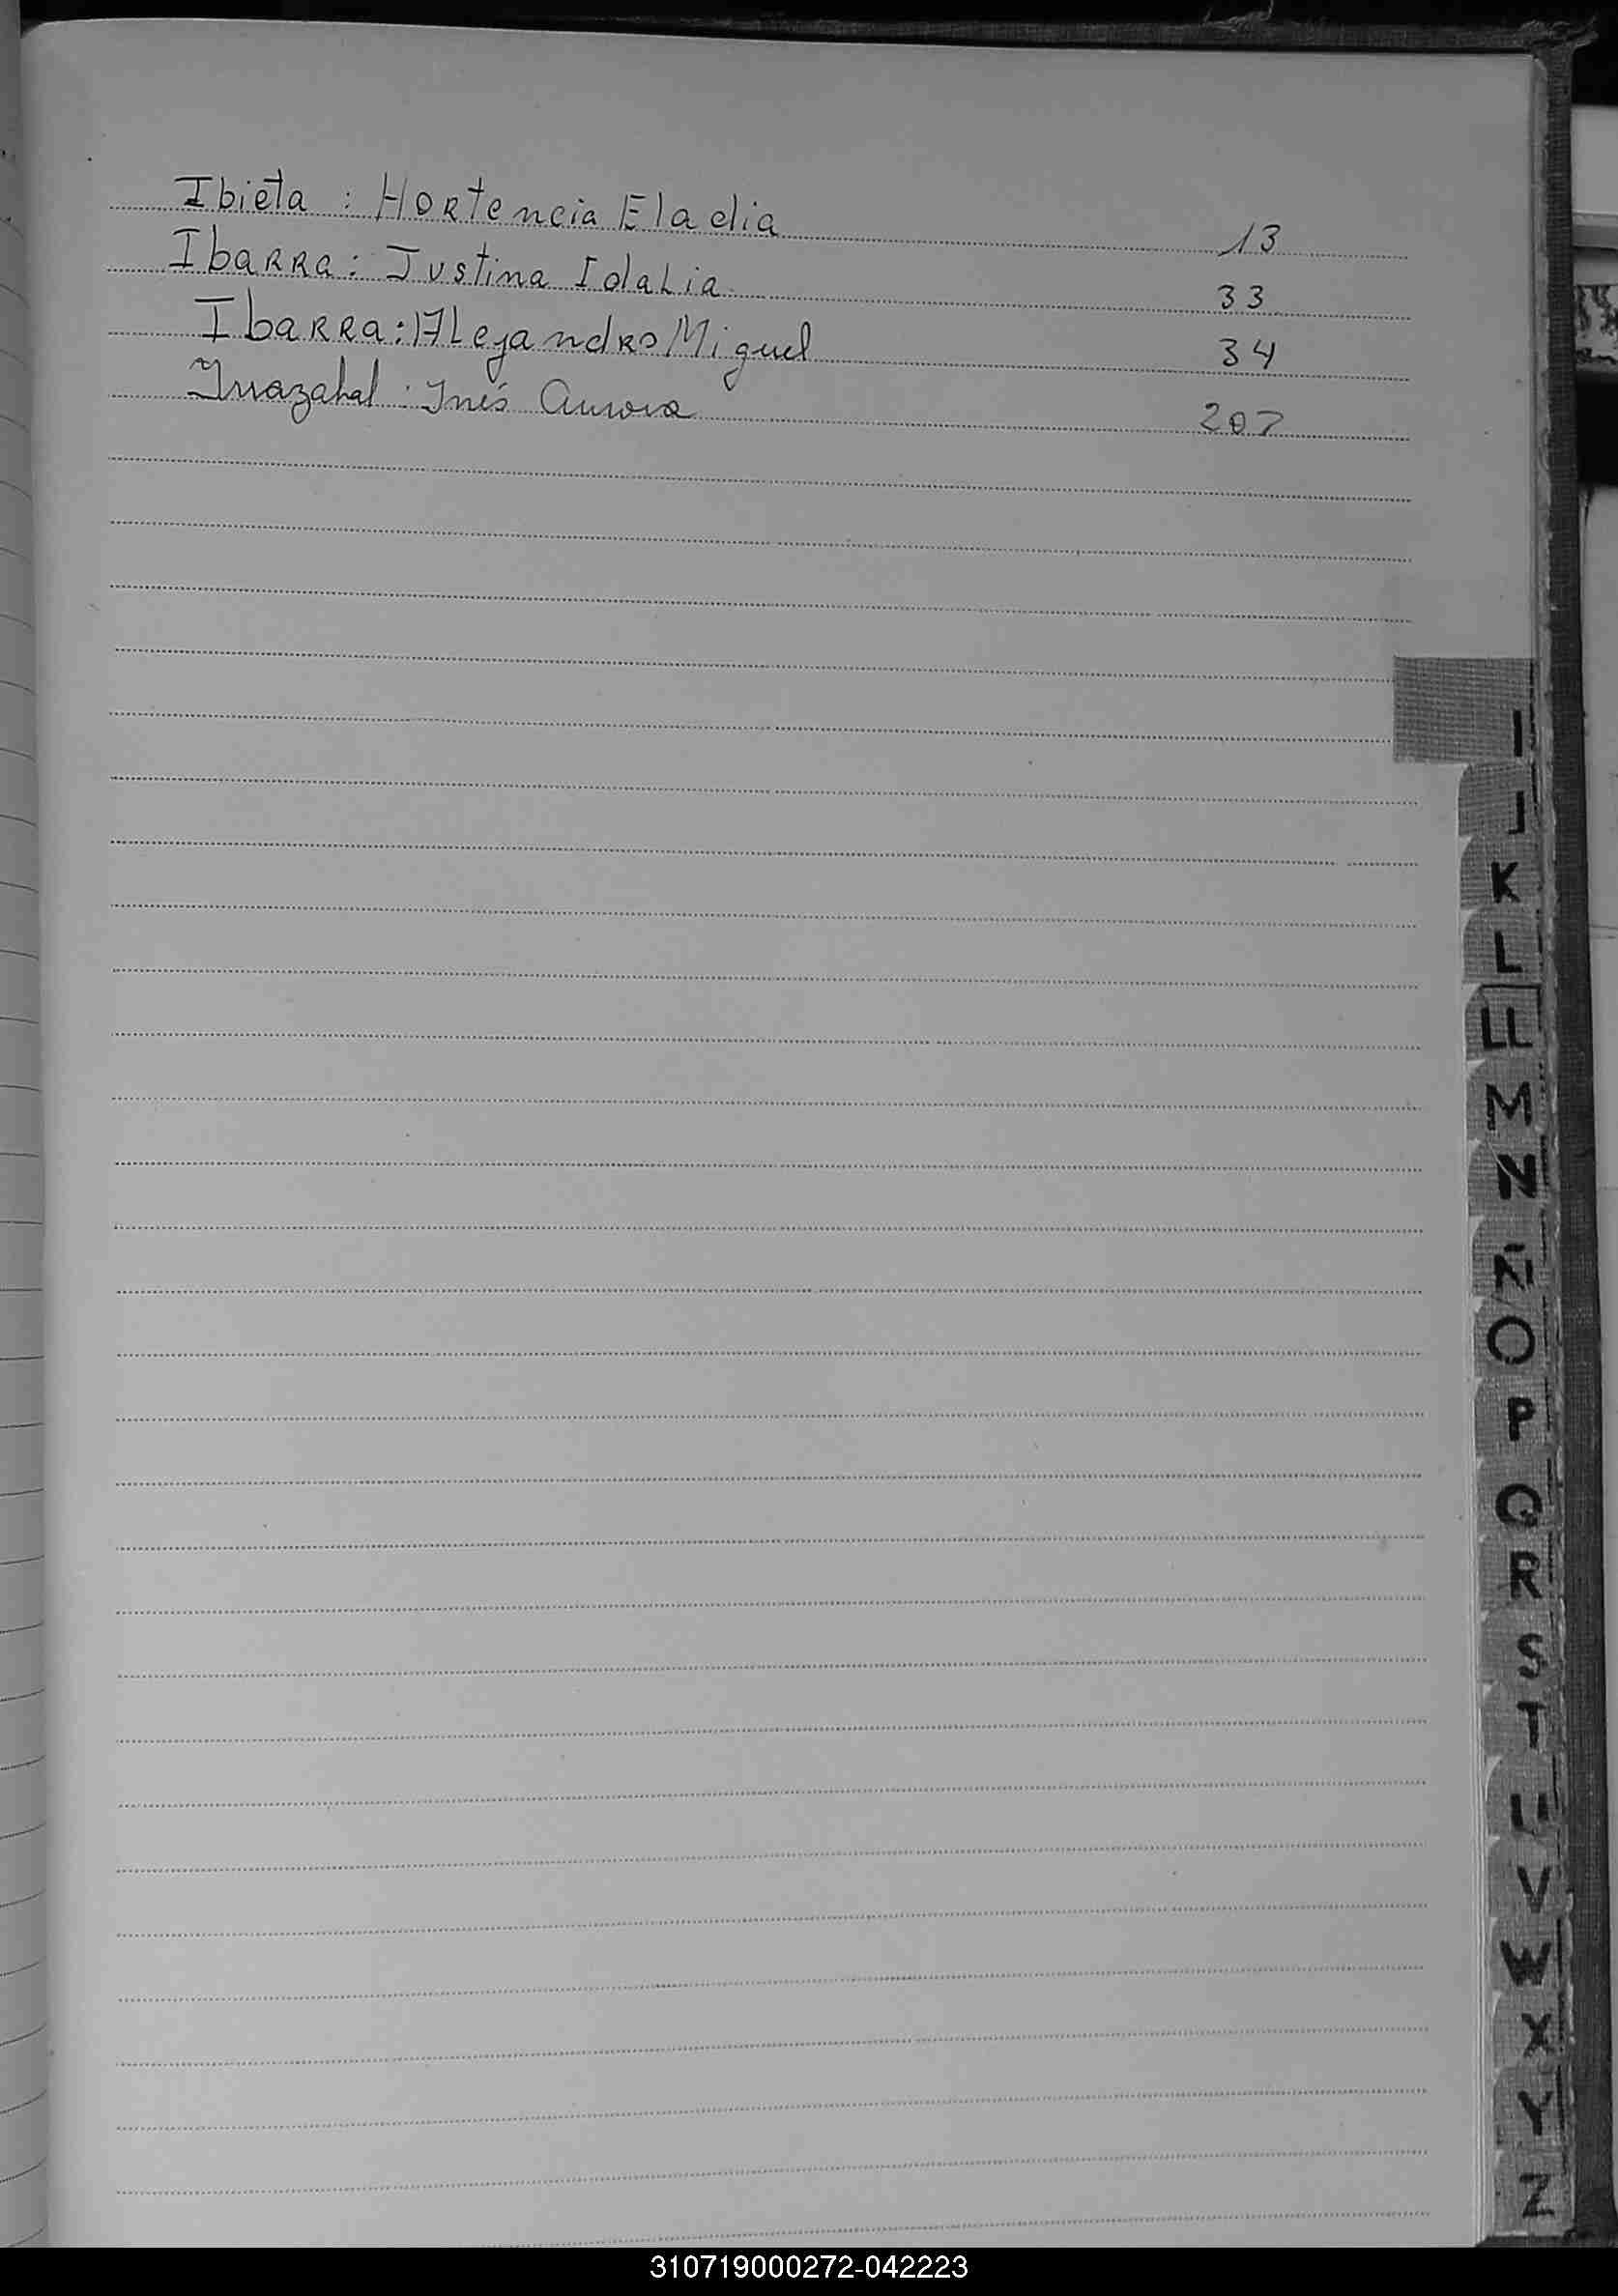 Ibieta : Hortencia Eladia 13
Ibarra : Justina Idalia 33
Ibarra : Alejandro Miguel 34
Irrazabal : Inés Aurora 207
I
J
K
L
LL
M
N
Ñ
O
P
Q
R
S
T
U
V
W
X
Y
Z
310719000272-042223